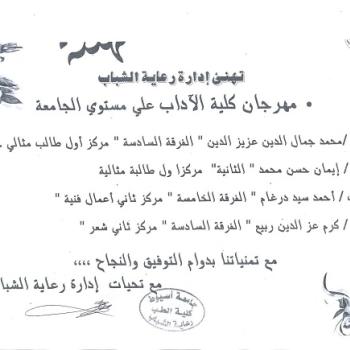 تهنئ إدارة رعاية الشباب
• مهرجان كلية الآداب علي مستوي الجامعة
/محمد جمال الدين عزيز الدين " الفرقة السادسة " مركز أول طالب مثالي .
/ إيمان حسن محمد " الثانية" مركزا ول طالبة مثالية
/ أحمد سيد درغام " الفرقة الخامسة " مركز ثاني أعمال فنية "
/ كرم عز الدين ربيع " الفرقة السادسة " مركز ثاني شعر "
مع تمنياتنا بدوام التوفيق والنجاح ,,,,
مع تحيات إدارة رعاية الشبا
جامعة أسيوط
كلية الطب
رعاية الشباب